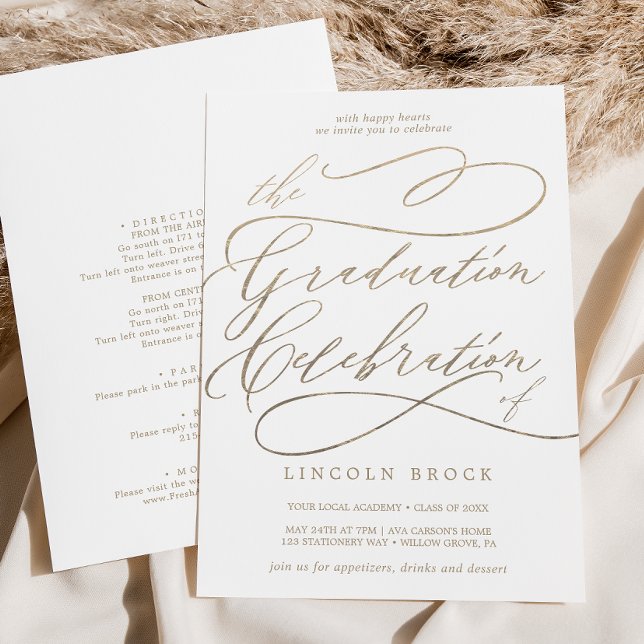 with happy hearts
we invite you to celebrate
the
Graduation
Celebration
of
LINCOLN BROCK
YOUR LOCAL ACADEMY • CLASS OF 20XX
MAY 24TH AT 7PM | AVA CARSON'S HOME
123 STATIONERY WAY • WILLOW GROVE, PA
join us for appetizers, drinks and dessert
• DIRECTIO
FROM THE AIR
Go south on I71 to
Turn left. Drive 6
Turn left onto weaver stree
Entrance is on
FROM CENT
Go north on I71
Turn right. Drive
Turn left onto weaver s
Entrance is
• PAR
Please park in the park
• R
Please reply to
215-
• MO
Please visit the we
www.FreshA